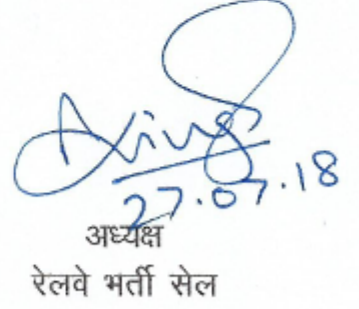 27.07.18
अध्यक्ष
रेलवे भर्ती सेल